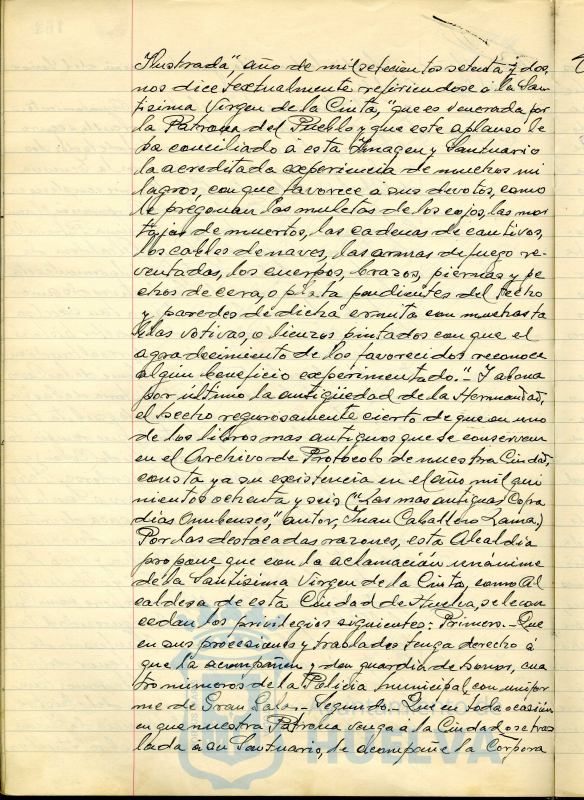 Ilustrada", año de mil setecientos setenta y dos,
nos dice textualmente refiriendose á la San
tisima Virgen de la Cinta, "que es venerada por
la Patrona del Pueblo y que este aplauso le
ha conciliado á esta Imagen y Santuario
la acreditada experiencia de muchos mi
lagros, con que favorece á sus devotos, como
lo pregonan las muletas de los cojos, las mor
tajas de muertos, las cadenas de cautivos,
los cables de naves, las armas de fuego re-
ventadas, los cuerpos, brazos, piernas y pe
chos de cera, o plata pendientes del techo
y paredes de dicha ermita con muchas ta
blas votivas, o lienzos pintados con que el
agradecimiento de los favorecidos reconoce
algún beneficio experimentado."- Y abona
por último la antigüedad de la Hermandad,
el hecho regurosamente cierto de que en uno
de los libros mas antiguos que se conservan
en el Archivo de Protocolo de nuestra Ciudad,
consta ya su existencia en el año mil qui
nientos ochenta y seis ("Las mas antiguas Cofra
dias Onubenses," autor, Juan Caballero Lama.)
Por las destacadas razones, esta Alcaldia
propone que con la aclamación unánime
de la Santisima Virgen de la Cinta, como Al
caldesa de esta Ciudad de Huelva, se le con
cedan los privilegios siguientes: Primero.- Que
en sus procesiones y traslados tenga derecho á
que la acompañen y den guardia de honor, cua
tro números de la Policia Municipal, con unifor
me de Gran Gala.- Segundo. Que en toda ocasión
en que nuestra Patrona venga á la Ciudad o se tras
lada á su Santuario, le acompañe la Corpora
HUELVA